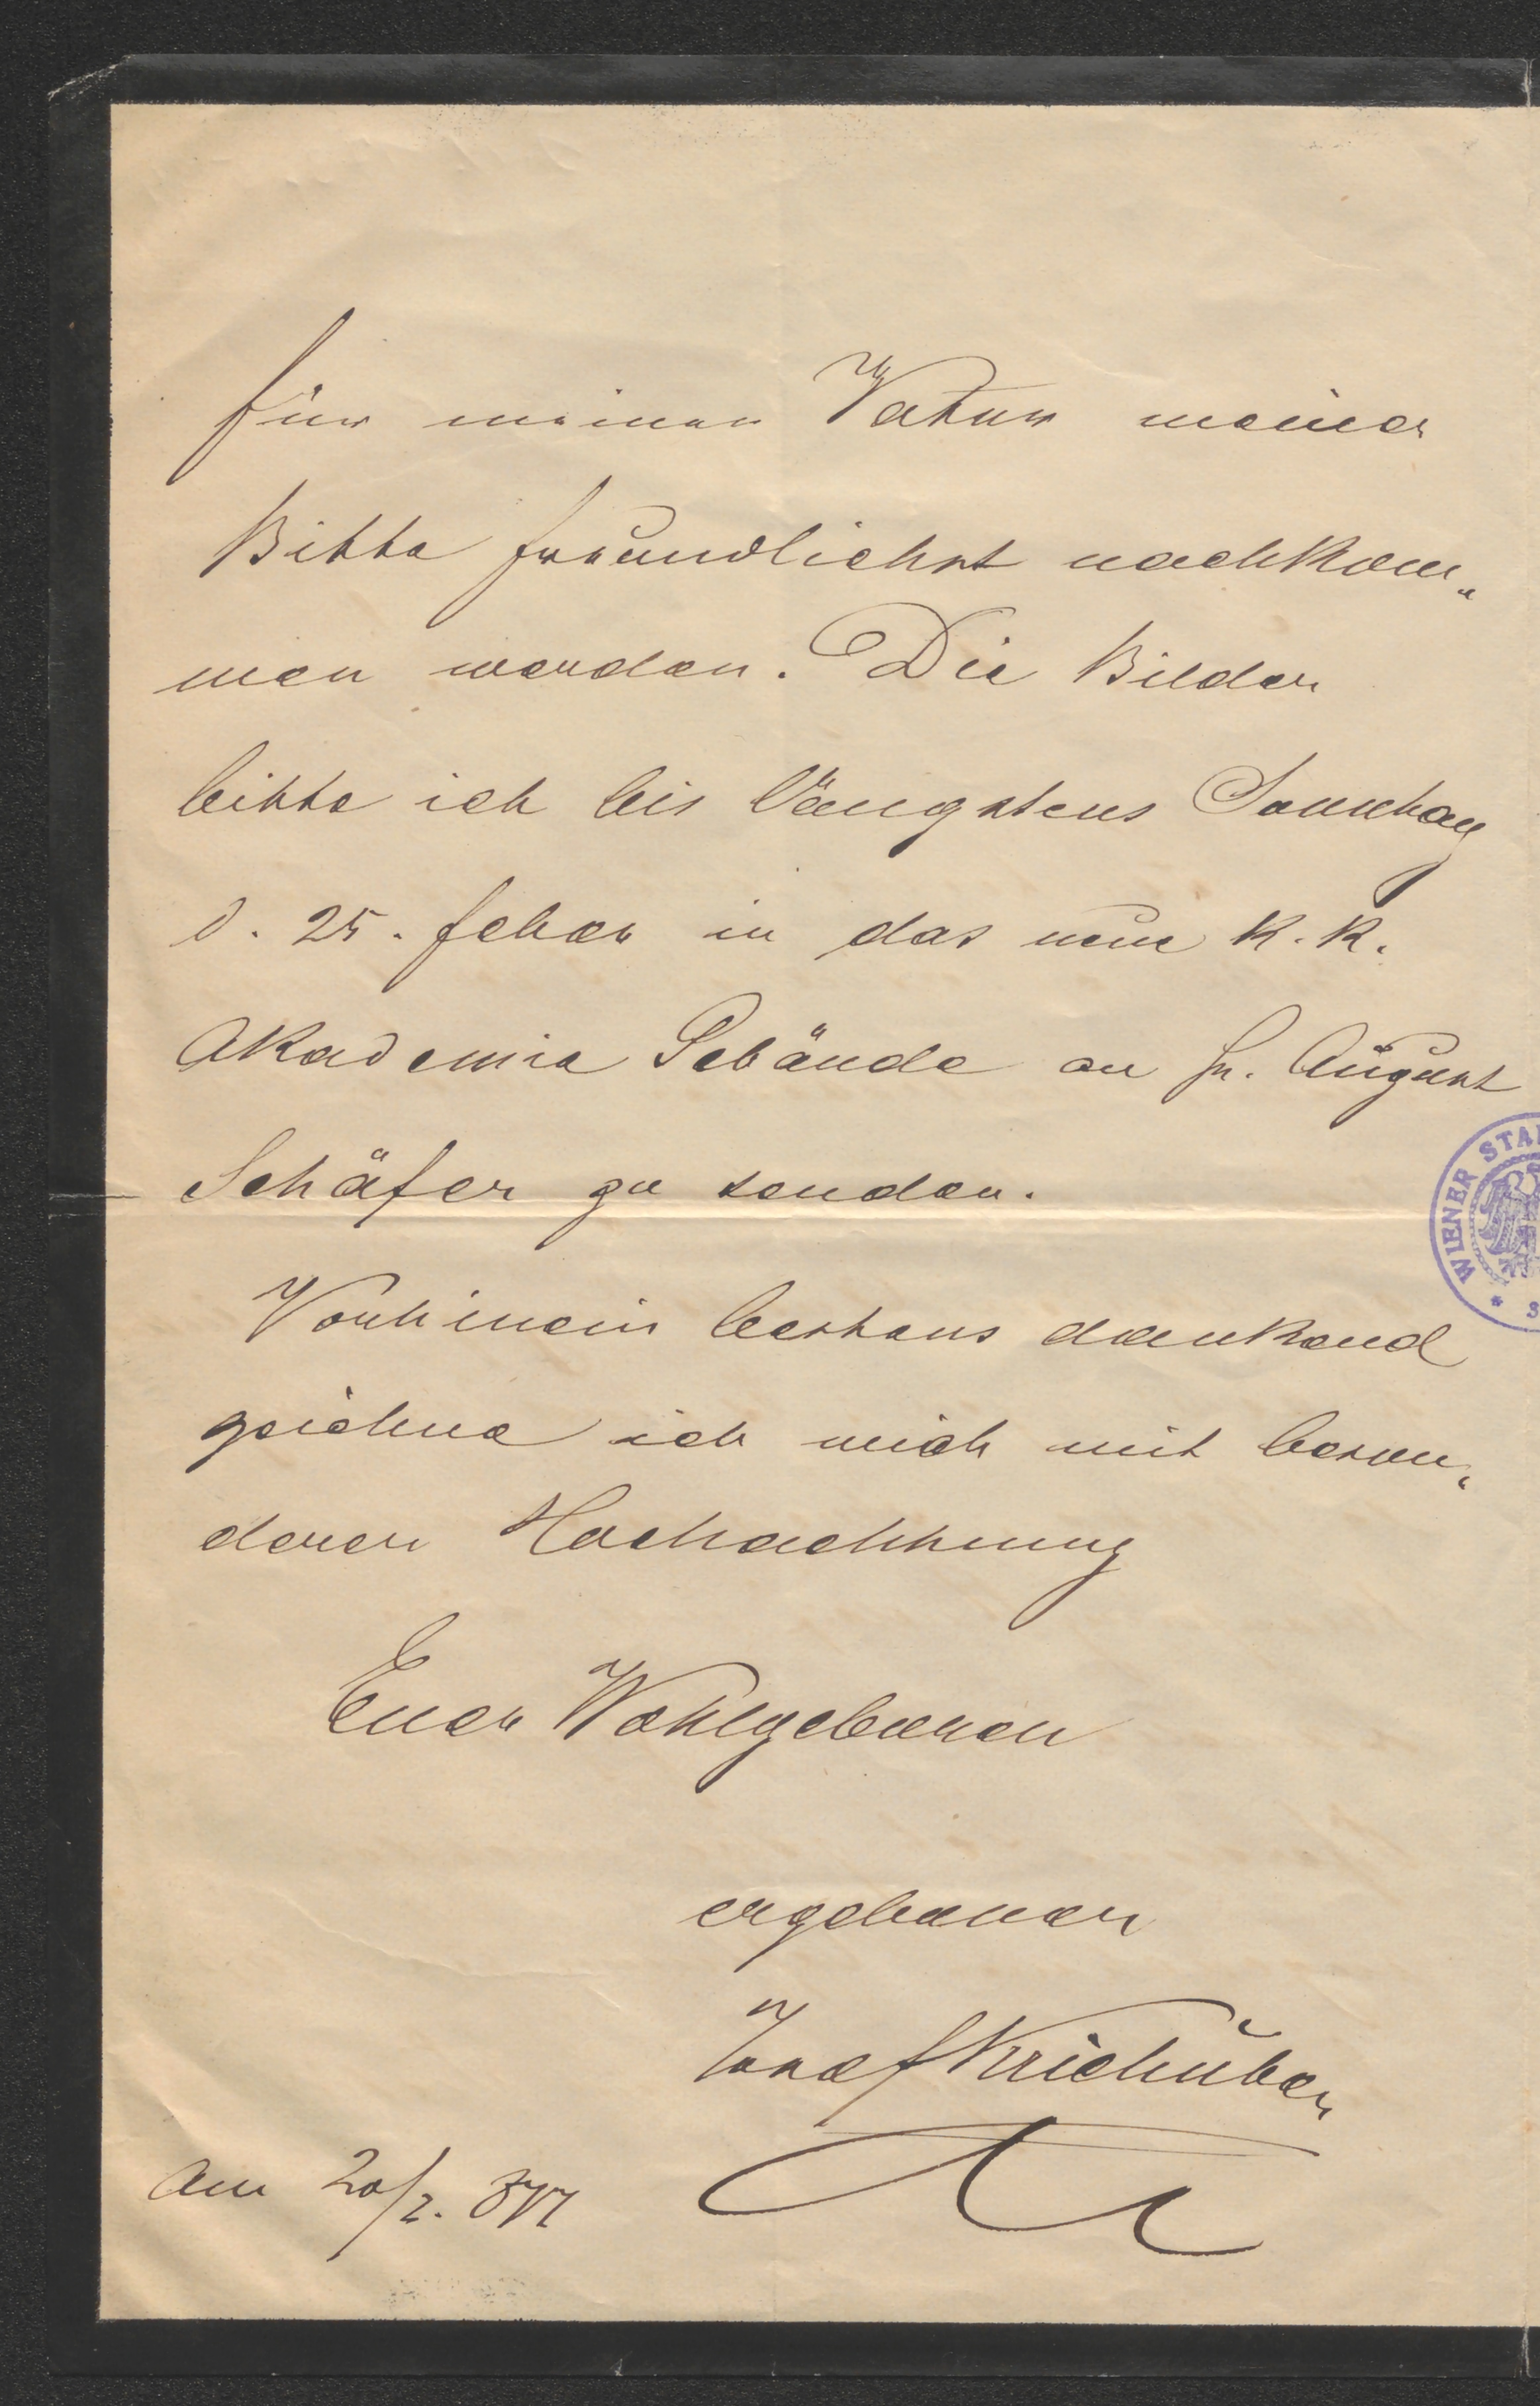 für meinen Vater meiner
Bitte freundlichst nachkom„
men werden. Die Bilder
bitte ich bis längstens Sonntag
d. 25. Feber in das neue k. k.
Akademie Gebäude an Hr. August
Schäfer zu senden.
Vorhinein bestens dankend
zeichne ich mich mit beson„
derer Hochachtung
Euer Wohlgeboren
ergebener
Josef Kriehuber
Am 20/2. 877
WIENER STA